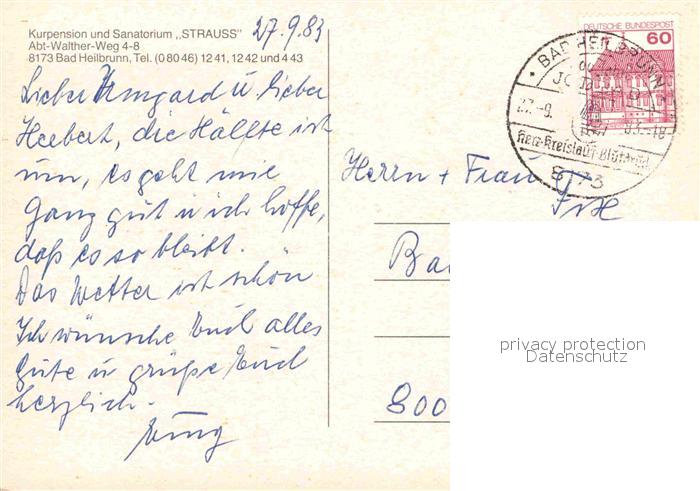 Kurpension und Sanatorium „STRAUSS"
Abt-Walther-Weg 4-8
8173 Bad Heilbrunn, Tel. (0 80 46) 12 41, 12 42 und 4 43
27.9.83
Lieber Irmgard u. lieber
Herbert, die Hällfte ist
um, es geht mir
ganz gut u ich hoffe,
daß es so bleibt.
Das Wetter ist schön
Ich wünsche Euch alles
Gute u grüße Euch
herzlich.
DEUTSCHE BUNDESPOST
60
BAD HEILBRUNN
Herz-Kreislauf-Blutdruck
8173
Herrn + Frau
Ba
800
privacy protection
Datenschutz